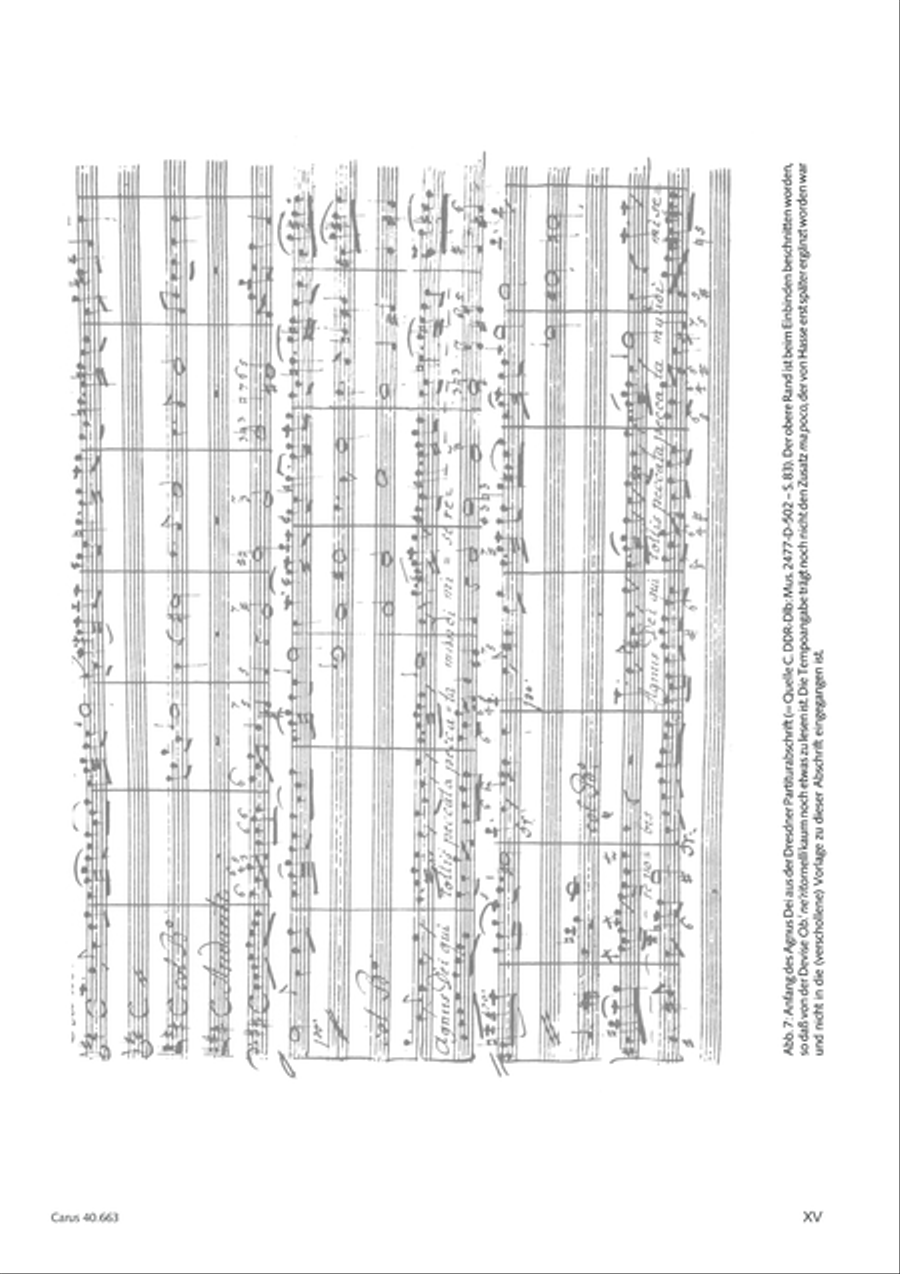 Andante
Agnus Dei qui tollis peccata pecca-ta mundi mi - sere - -
Agnus Dei qui tollis peccata pecca ta mundi mise
Abb. 7: Anfang des Agnus Dei aus der Dresdner Partiturabschrift (= Quelle C. DDR-Dlb: Mus. 2477-D-502 – S. 83). Der obere Rand ist beim Einbinden beschnitten worden,
so daß von der Devise Ob.' ne' ritornelli kaum noch etwas zu lesen ist. Die Tempoangabe trägt noch nicht den Zusatz ma poco, der von Hasse erst später ergänzt worden war
und nicht in die (verschollene) Vorlage zu dieser Abschrift eingegangen ist.
Carus 40.663
XV